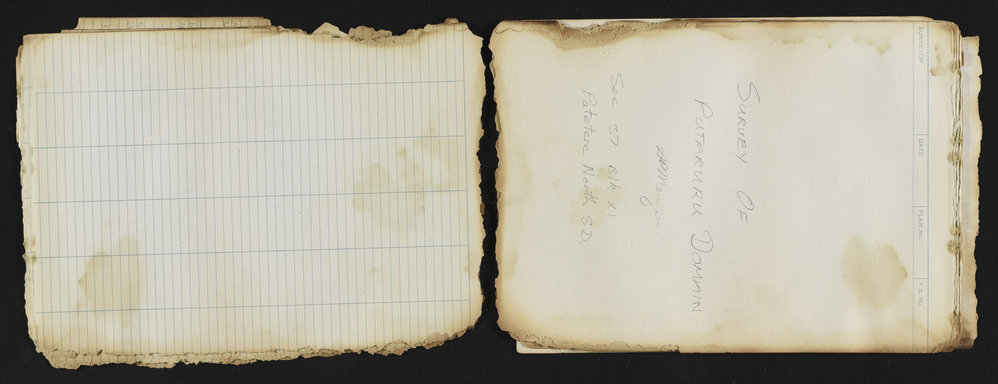 SURVEYOR
DATE
PLAN No.
F.B. No.
SURVEY OF
PUTARURU DOMAIN.
Sec 37 Blk XI
Patetere North S.D.